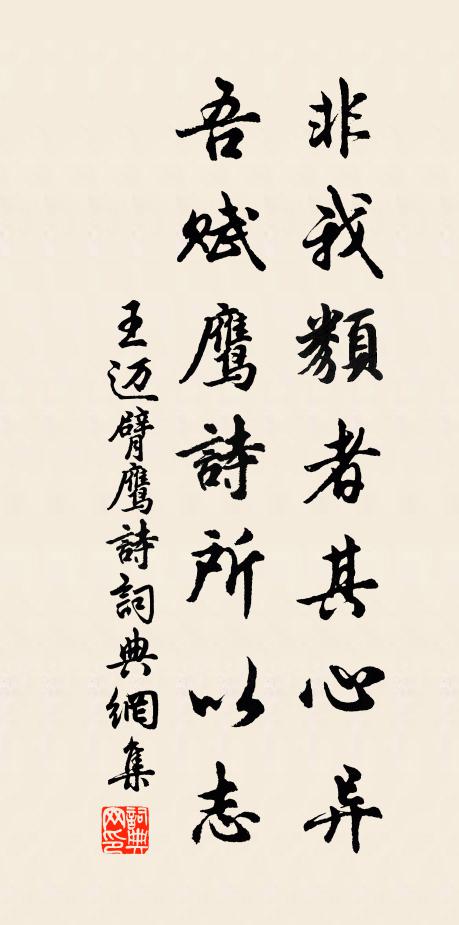 非我類者其心异
吾赋鹰詩所以志
王迈臂鹰詩詞典網集
詞典網印